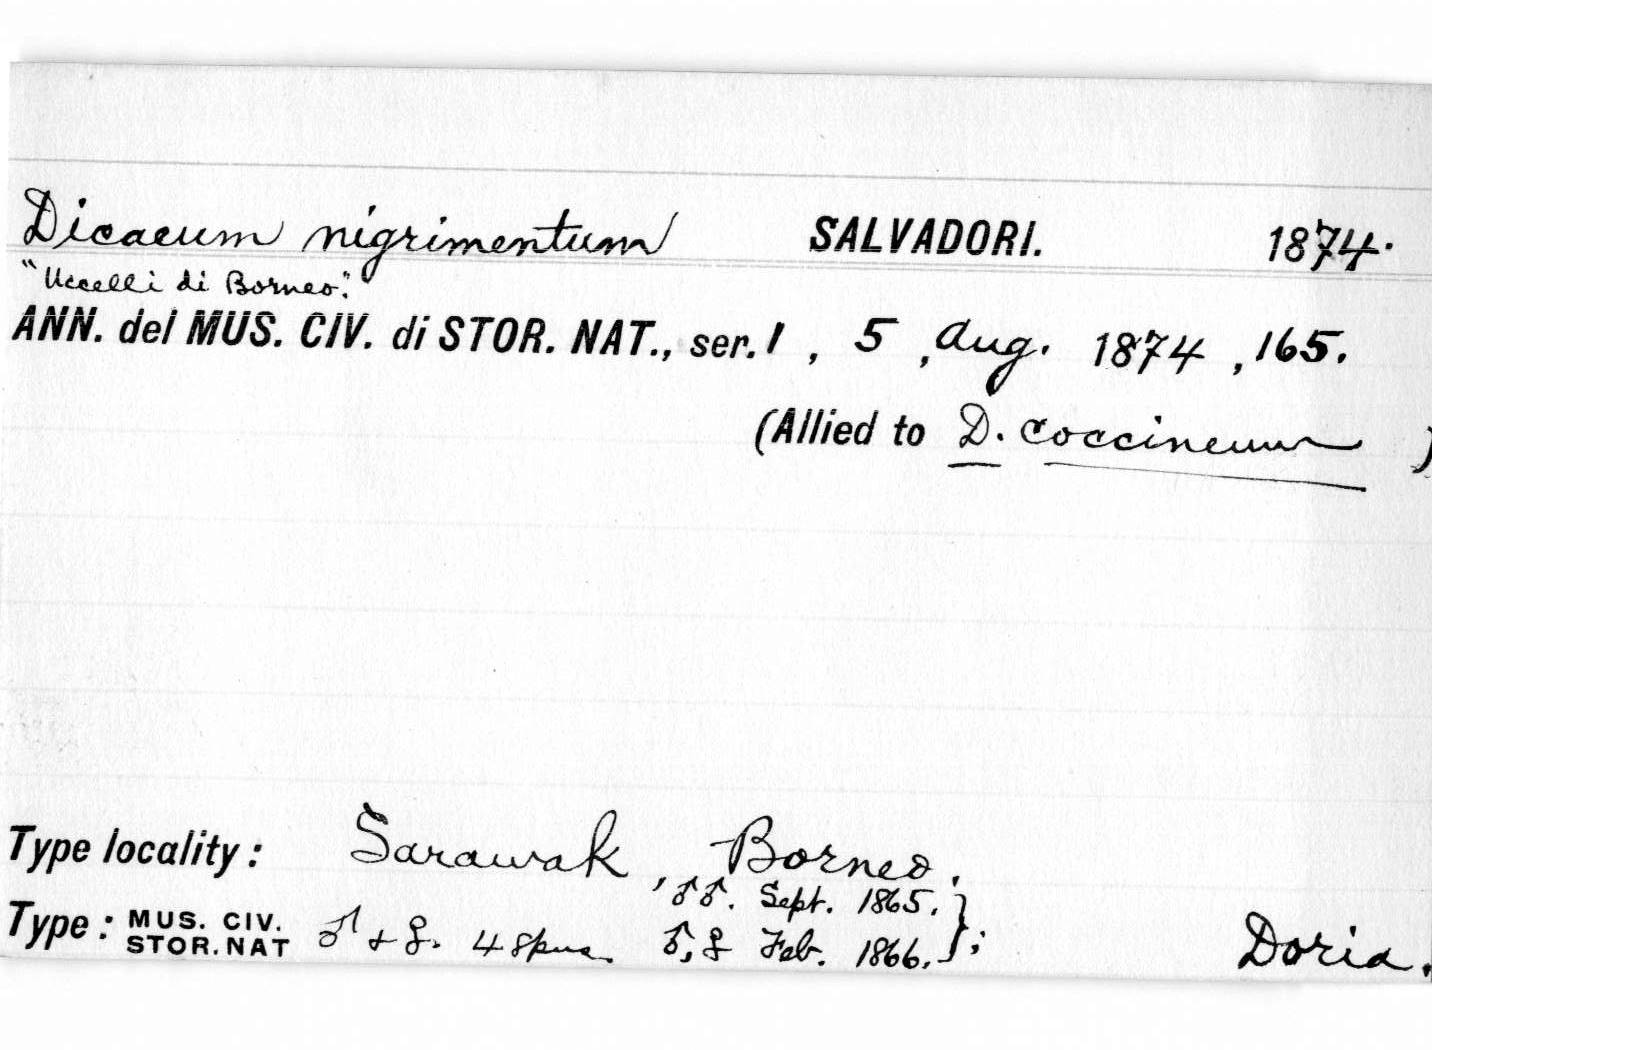 Dicaeum nigrimentum SALVADORI. 1874.
"Uccelli di Borneo".
ANN. del MUS. CIV. di STOR. NAT., ser. 1, 5, Aug. 1874, 165.
(Allied to D. coccineum )
Type locality: Sarawak, Borneo.
, ♂♂. Sept. 1865.}
Type: MUS. CIV. STOR. NAT ♂ + ♀. 4 spms. ♂, ♀ Feb. 1866.}; Doria.